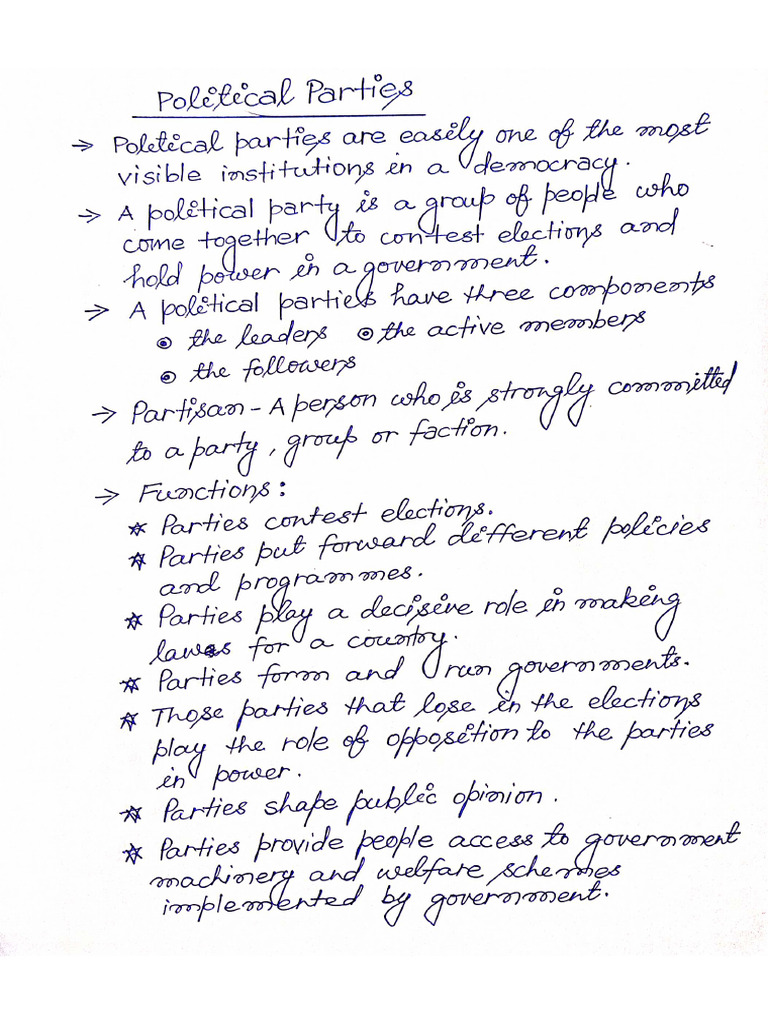 Political Parties
→ Political parties are easily one of the most
visible institutions in a democracy.
→ A political party is a group of people who
come together to contest elections and
hold power in a government.
→ A political parties have three components
⊙ the leaders ⊙ the active members
⊙ the followers
→ Partisan - A person who is strongly committed
to a party, group or faction.
→ Functions:
☆ Parties contest elections.
☆ Parties put forward different policies
and programmes.
☆ Parties play a decisive role in making
laws for a country.
☆ Parties form and run governments.
☆ Those parties that lose in the elections
play the role of opposition to the parties
in power.
☆ Parties shape public opinion.
☆ Parties provide people access to government
machinery and welfare schemes
implemented by government.